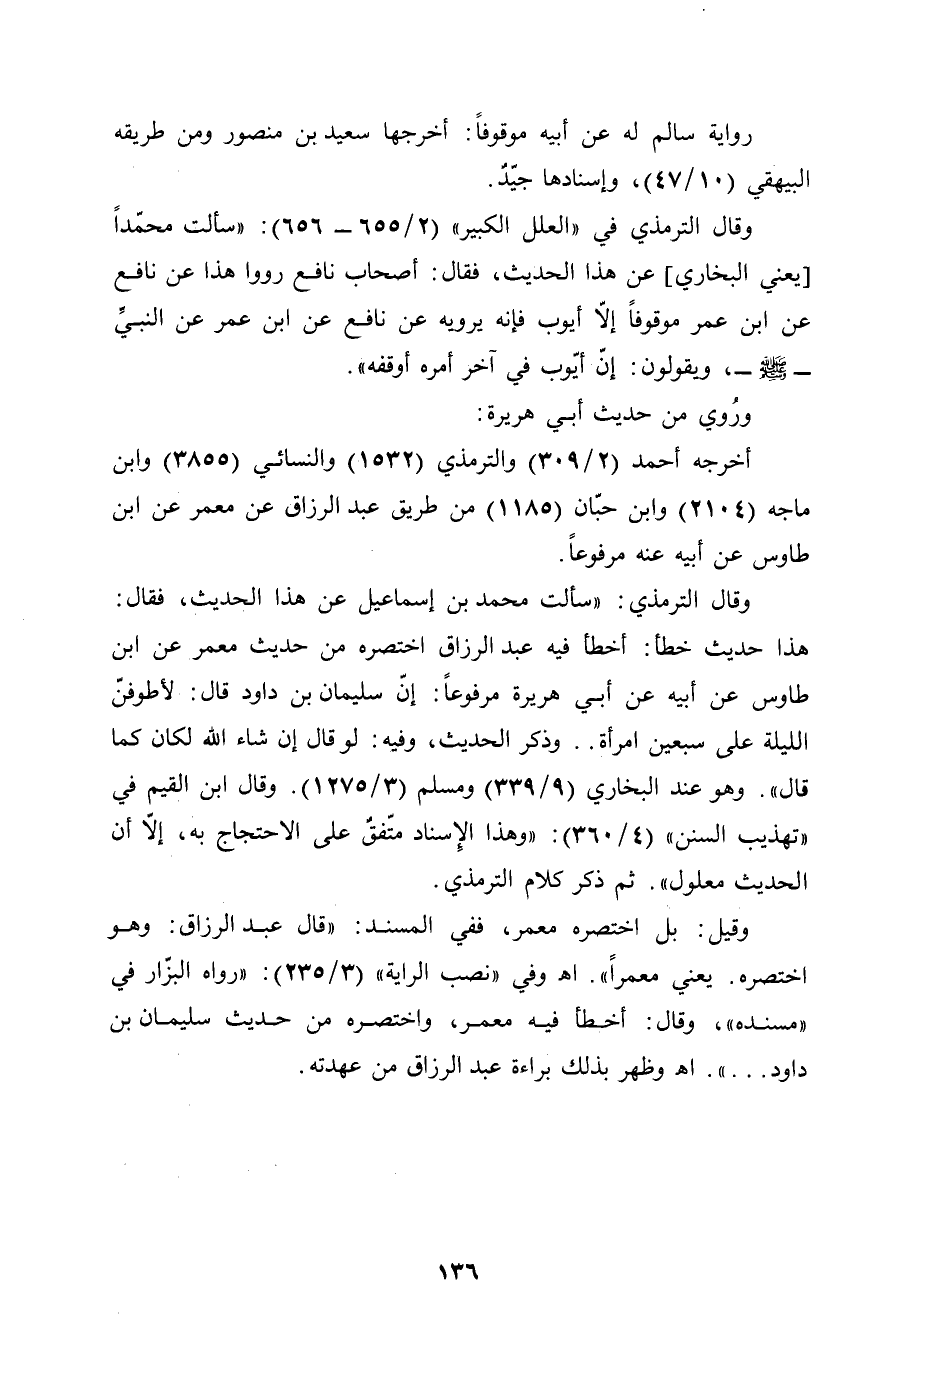 رواية سالم له عن أبيه موقوفاً: أخرجها سعيد بن منصور ومن طريقه
البيهقي (٤٧/١٠)، وإسنادها جيّدٌ.
وقال الترمذي في «العلل الكبير» (٦٥٥/٢ ــ ٦٥٦): «سألت محمّداً
[يعني البخاري] عن هذا الحديث، فقال: أصحاب نافع رووا هذا عن نافع
عن ابن عمر موقوفاً إلّا أيوب فإنه يرويه عن نافع عن ابن عمر عن النبيِّ
ــ ﷺ ــ، ويقولون: إنّ أيّوب في آخر أمره أوقفه».
ورُوي من حديث أبي هريرة:
أخرجه أحمد (٣٠٩/٢) والترمذي (١٥٣٢) والنسائي (٣٨٥٥) وابن
ماجه (٢١٠٤) وابن حبّان (١١٨٥) من طريق عبد الرزاق عن معمر عن ابن
طاوس عن أبيه عنه مرفوعاً.
وقال الترمذي: «سألت محمد بن إسماعيل عن هذا الحديث، فقال:
هذا حديث خطأ: أخطأ فيه عبد الرزاق اختصره من حديث معمر عن ابن
طاوس عن أبيه عن أبي هريرة مرفوعاً: إنّ سليمان بن داود قال: لأطوفنّ
الليلة على سبعين امرأة.. وذكر الحديث، وفيه: لو قال إن شاء الله لكان كما
قال». وهو عند البخاري (٣٣٩/٩) ومسلم (١٢٧٥/٣). وقال ابن القيم في
«تهذيب السنن» (٣٦٠/٤): «وهذا الإسناد متّفقٌ على الاحتجاج به، إلّا أن
الحديث معلول». ثم ذكر كلام الترمذي.
وقيل: بل اختصره معمر، ففي المسند: «قال عبد الرزاق: وهو
اختصره. يعني معمراً». اهـ وفي «نصب الراية» (٢٣٥/٣): «رواه البزّار في
«مسنده»، وقال: أخطأ فيه معمر، واختصره من حديث سليمان بن
داود...». اهـ وظهر بذلك براءة عبد الرزاق من عهدته.
١٣٦